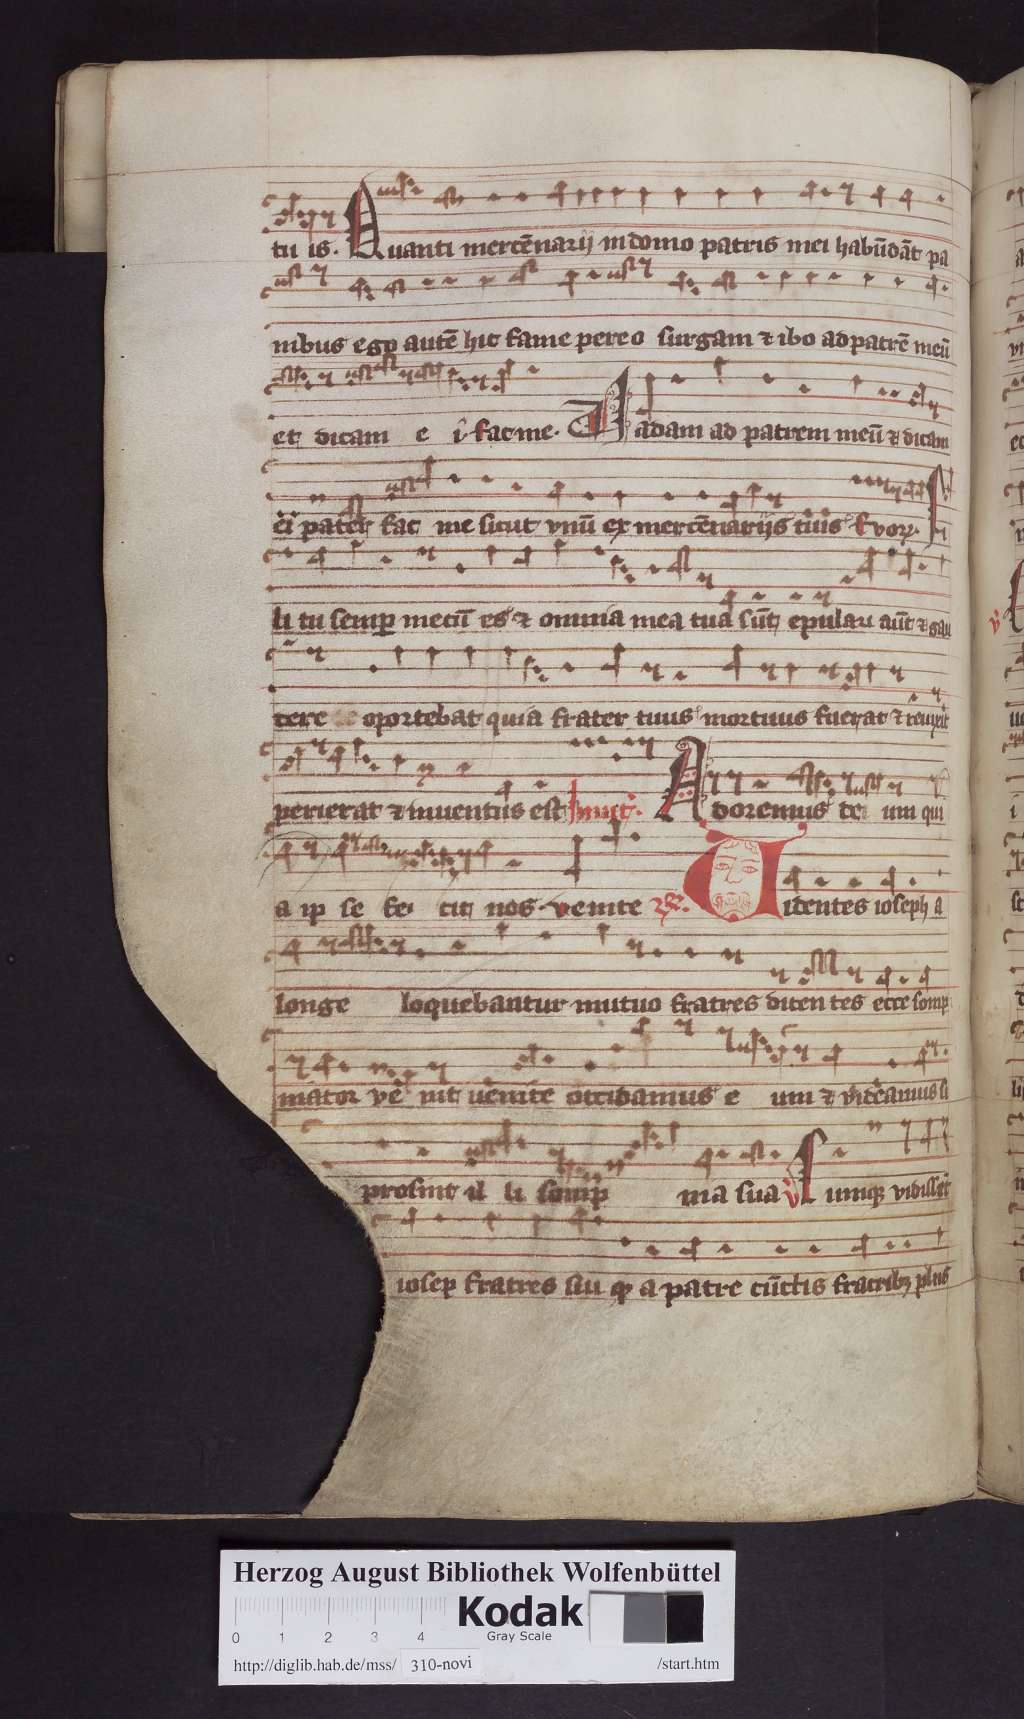 tu is. Quanti mercēnarij in domo patris mei habūdāt pa
nibus ego autē hic fame pereo surgam ⁊ ibo ad patrē meū
et dicam e i. fac me. Vadam ad patrem meū ⁊ dicam
ei pater fac me sicut vnū ex mercēnarijs tuis
li tu semp mecū es ⁊ omnia mea tua sūt epulari aūt ⁊ gau
dere oportebat quia frater tuus mortuus fuerat ⁊ reuixit
perierat ⁊ inuentus est Inuit. Adoremus de um qui
a ip se fe cit nos. venite R. Videntes ioseph a
longe loquebantur mutuo fratres dicentes ecce somp
niator ve nit uenite occidamus e um ⁊ videamus si
prosint il li somp nia sua V Cumq vidissēt
iosep fratres sui q a patre cūctis fratribꝫ plus
Herzog August Bibliothek Wolfenbüttel
0 1 2 3 4
Kodak
Gray Scale
http://diglib.hab.de/mss/ 310-novi /start.htm